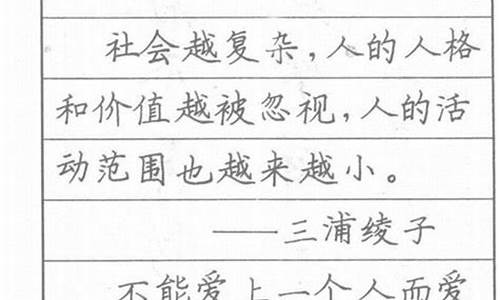 社会越复杂,人的人格
和价值越被忽视,人的活
动范围也越来越小。
——三浦绫子
不能爱上一个人而爱